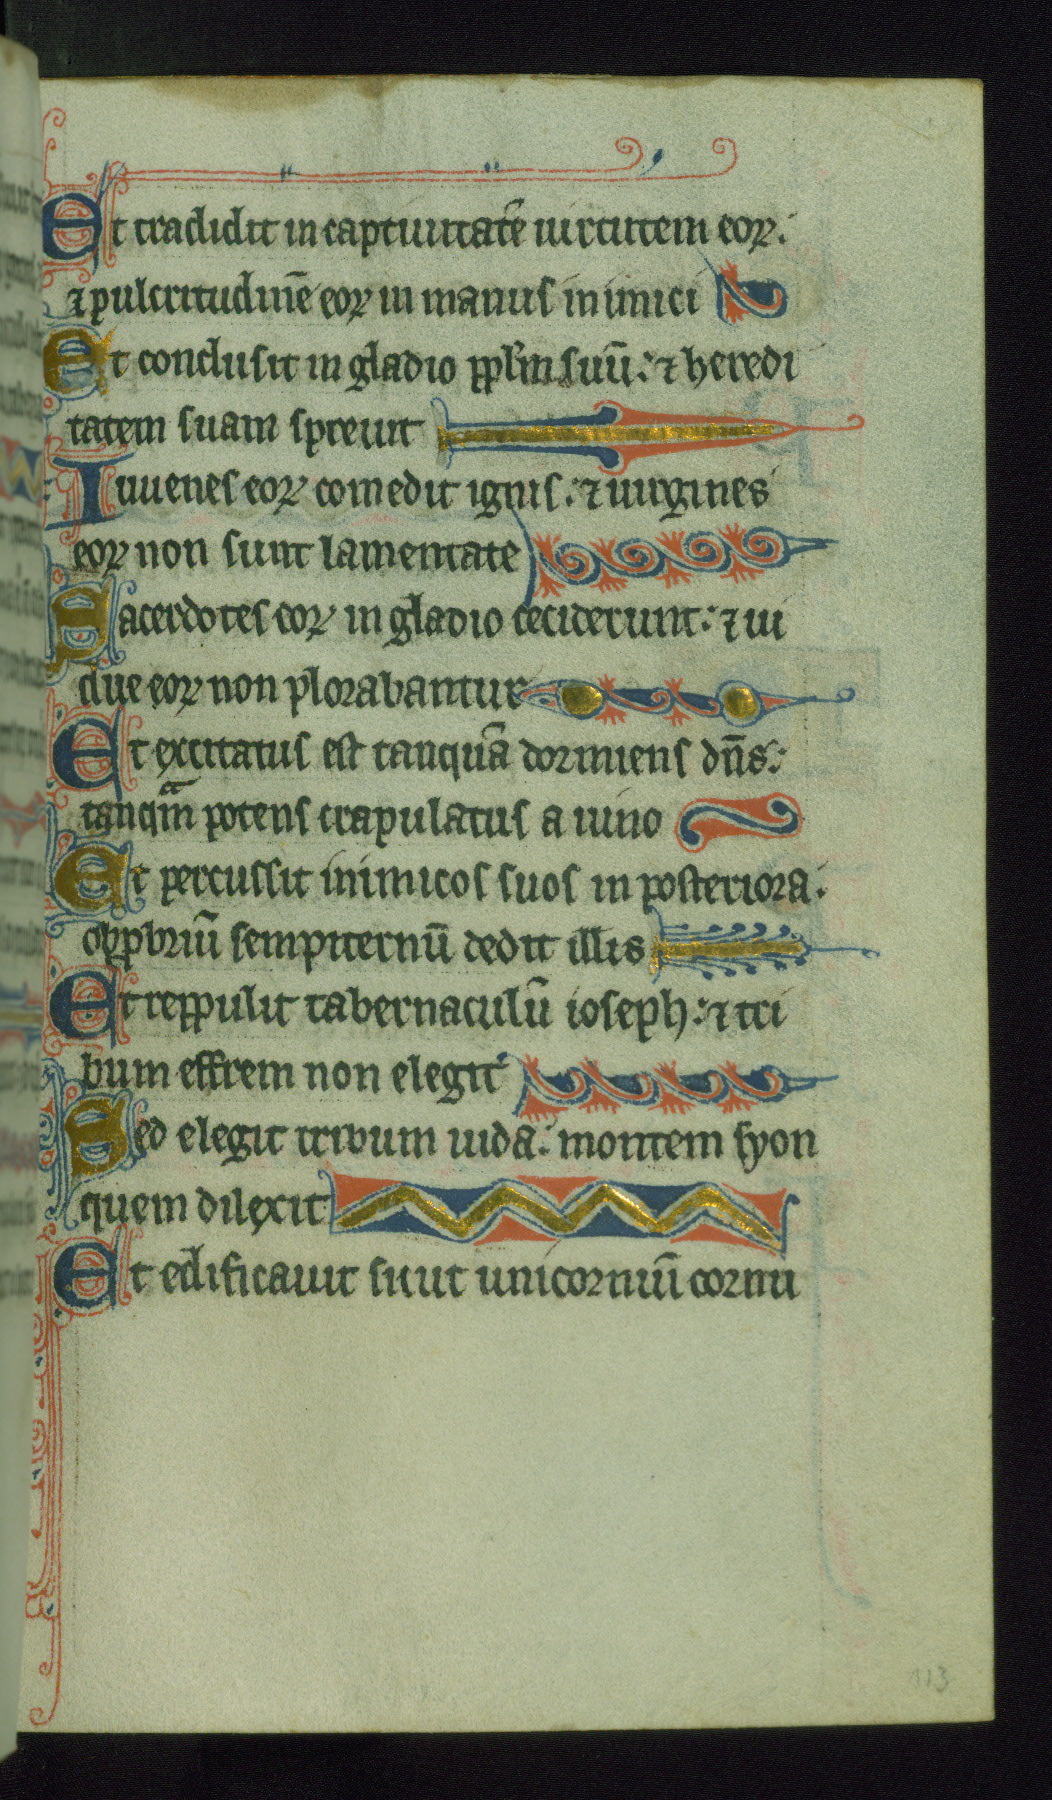 Et tradidit in captiuitatē uirtutem eoꝝ:
⁊ pulcritudinē eoꝝ in manus inimici
Et conclusit in gladio pplm̄ suū: ⁊ heredi
tatem suam spreuit
Iuuenes eoꝝ comedit ignis: ⁊ uirgines
eoꝝ non sunt lamentate
Sacerdotes eoꝝ in gladio ceciderunt: ⁊ ui
due eoꝝ non plorabantur
Et excitatus est tanquā dormiens dn̄s:
tanqᵃm potens crapulatus a uino
Et percussit inimicos suos in posteriora:
opꝓbriū sempiternū dedit illis
Et reppulit tabernaculū ioseph: ⁊ tri
bum effrem non elegit
Sed elegit tribum iuda: montem syon
quem dilexit
Et edificauit sicut unicorniū cornu
113